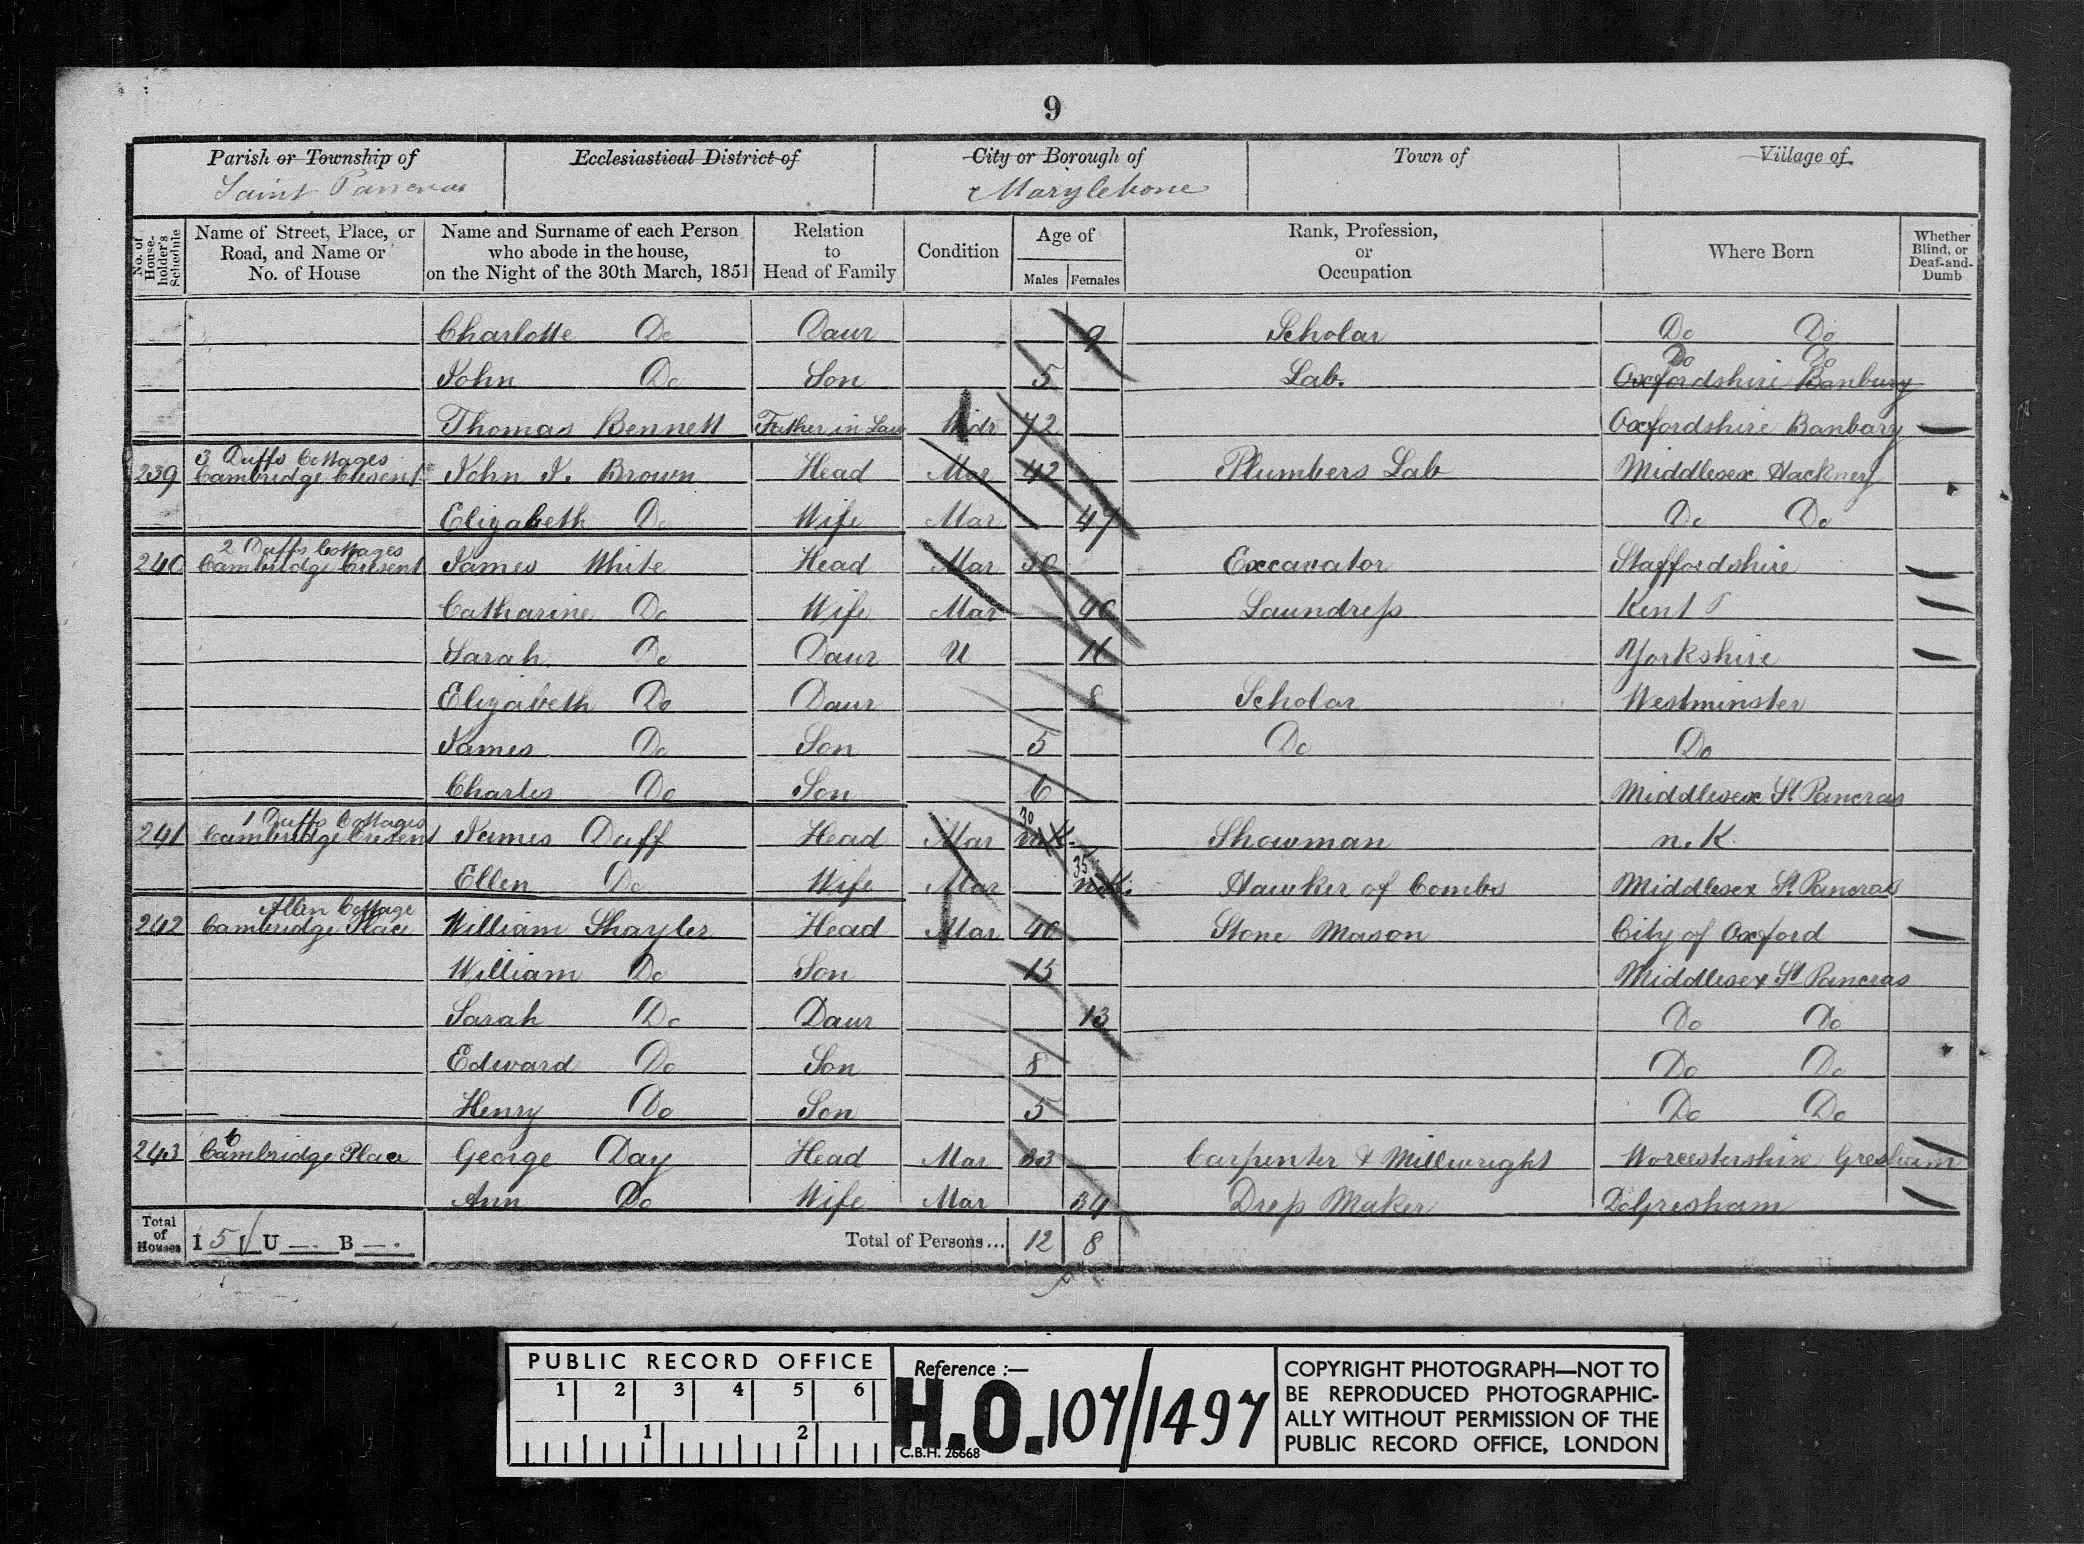 9
Parish or Township of Ecclesiastical District of City or Borough of Town of Village of
Saint Pancras Marylebone
No. of House-holder's Schedule Name of Street, Place, or Road, and Name or No. of House Name and Surname of each Person who abode in the house, on the Night of the 30th March, 1851 Relation to Head of Family Condition Age of Males Females Rank, Profession, or Occupation Where Born Whether Blind, or Deaf-and-Dumb
Charlotte Do Daur 9 Scholar Do Do
Do Do
John Do Son 5 Lab. Oxfordshire Banbury
Thomas Bennett Father in Law Widr 72 Oxfordshire Banbary
3 Duffs Cottages
239 Cambridge Cresent John J. Brown Head Mar 42 Plumbers Lab Middlesex Hackney
Elizabeth Do Wife Mar 47 Do Do
2 Duffs Cottages
240 Cambridge Cresent James White Head Mar Excavator Staffordshire
Catharine Do Wife Mar 40 Laundress Kent
Sarah Do Daur U 16 Yorkshire
Elizabeth Do Daur 8 Scholar Westminster
James Do Son 5 Do Do
Charles Do Son 6 Middlesex St Pancras
1 Duffs Cottages 30
241 Cambridge Cresent James Duff Head Mar n.K. Showman n.K.
35
Ellen Do Wife Mar n.K. Hawker of Combs Middlesex St Pancras
Allen Cottage
242 Cambridge Place William Shayler Head Mar 40 Stone Mason City of Oxford
William Do Son 15 Middlesex St Pancras
Sarah Do Daur 13 Do Do
Edward Do Son 8 Do Do
Henry Do Son 5 Do Do
6
243 Cambridge Place George Day Head Mar 33 Carpenter & Millwright Worcestershire Gresham
Ann Do Wife Mar 34 Dress Maker Do Gresham
Total of Houses I 5 U —. B —. Total of Persons... 12 8
PUBLIC RECORD OFFICE
1 2 3 4 5 6
1 2
Reference :—
H.O. 107/1497
C.B.H. 26668
COPYRIGHT PHOTOGRAPH—NOT TO
BE REPRODUCED PHOTOGRAPHIC-
ALLY WITHOUT PERMISSION OF THE
PUBLIC RECORD OFFICE, LONDON